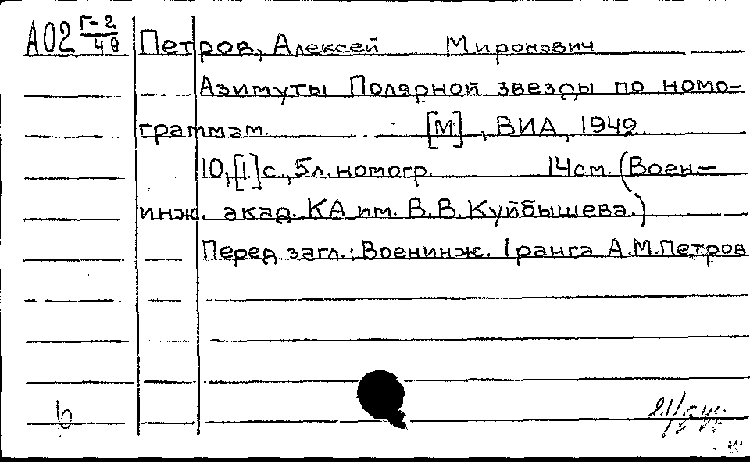 А02 Г-2/49 Петров, Алексей Миронович
Азимуты Полярной звезды по номо-
граммам. [М], ВИА, 1942.
10, [1] с., 5 л. номогр. 14 см. (Воен-
инж. акад. КА им. В. В. Куйбышева.)
Перед загл.: Военинж. I ранга А.М. Петров
б